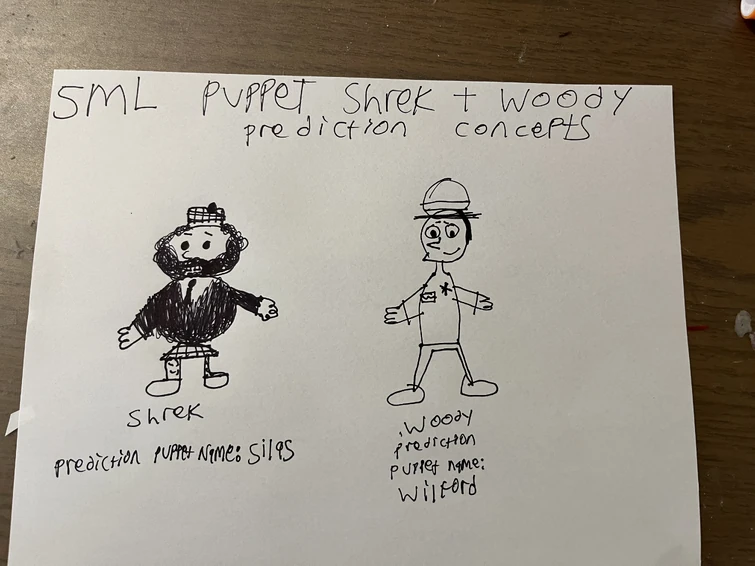 SML PUPPET Shrek + Woody
prediction concepts
Shrek
prediction puppet Name: Silas
Woody
prediction
puppet name:
Wilford